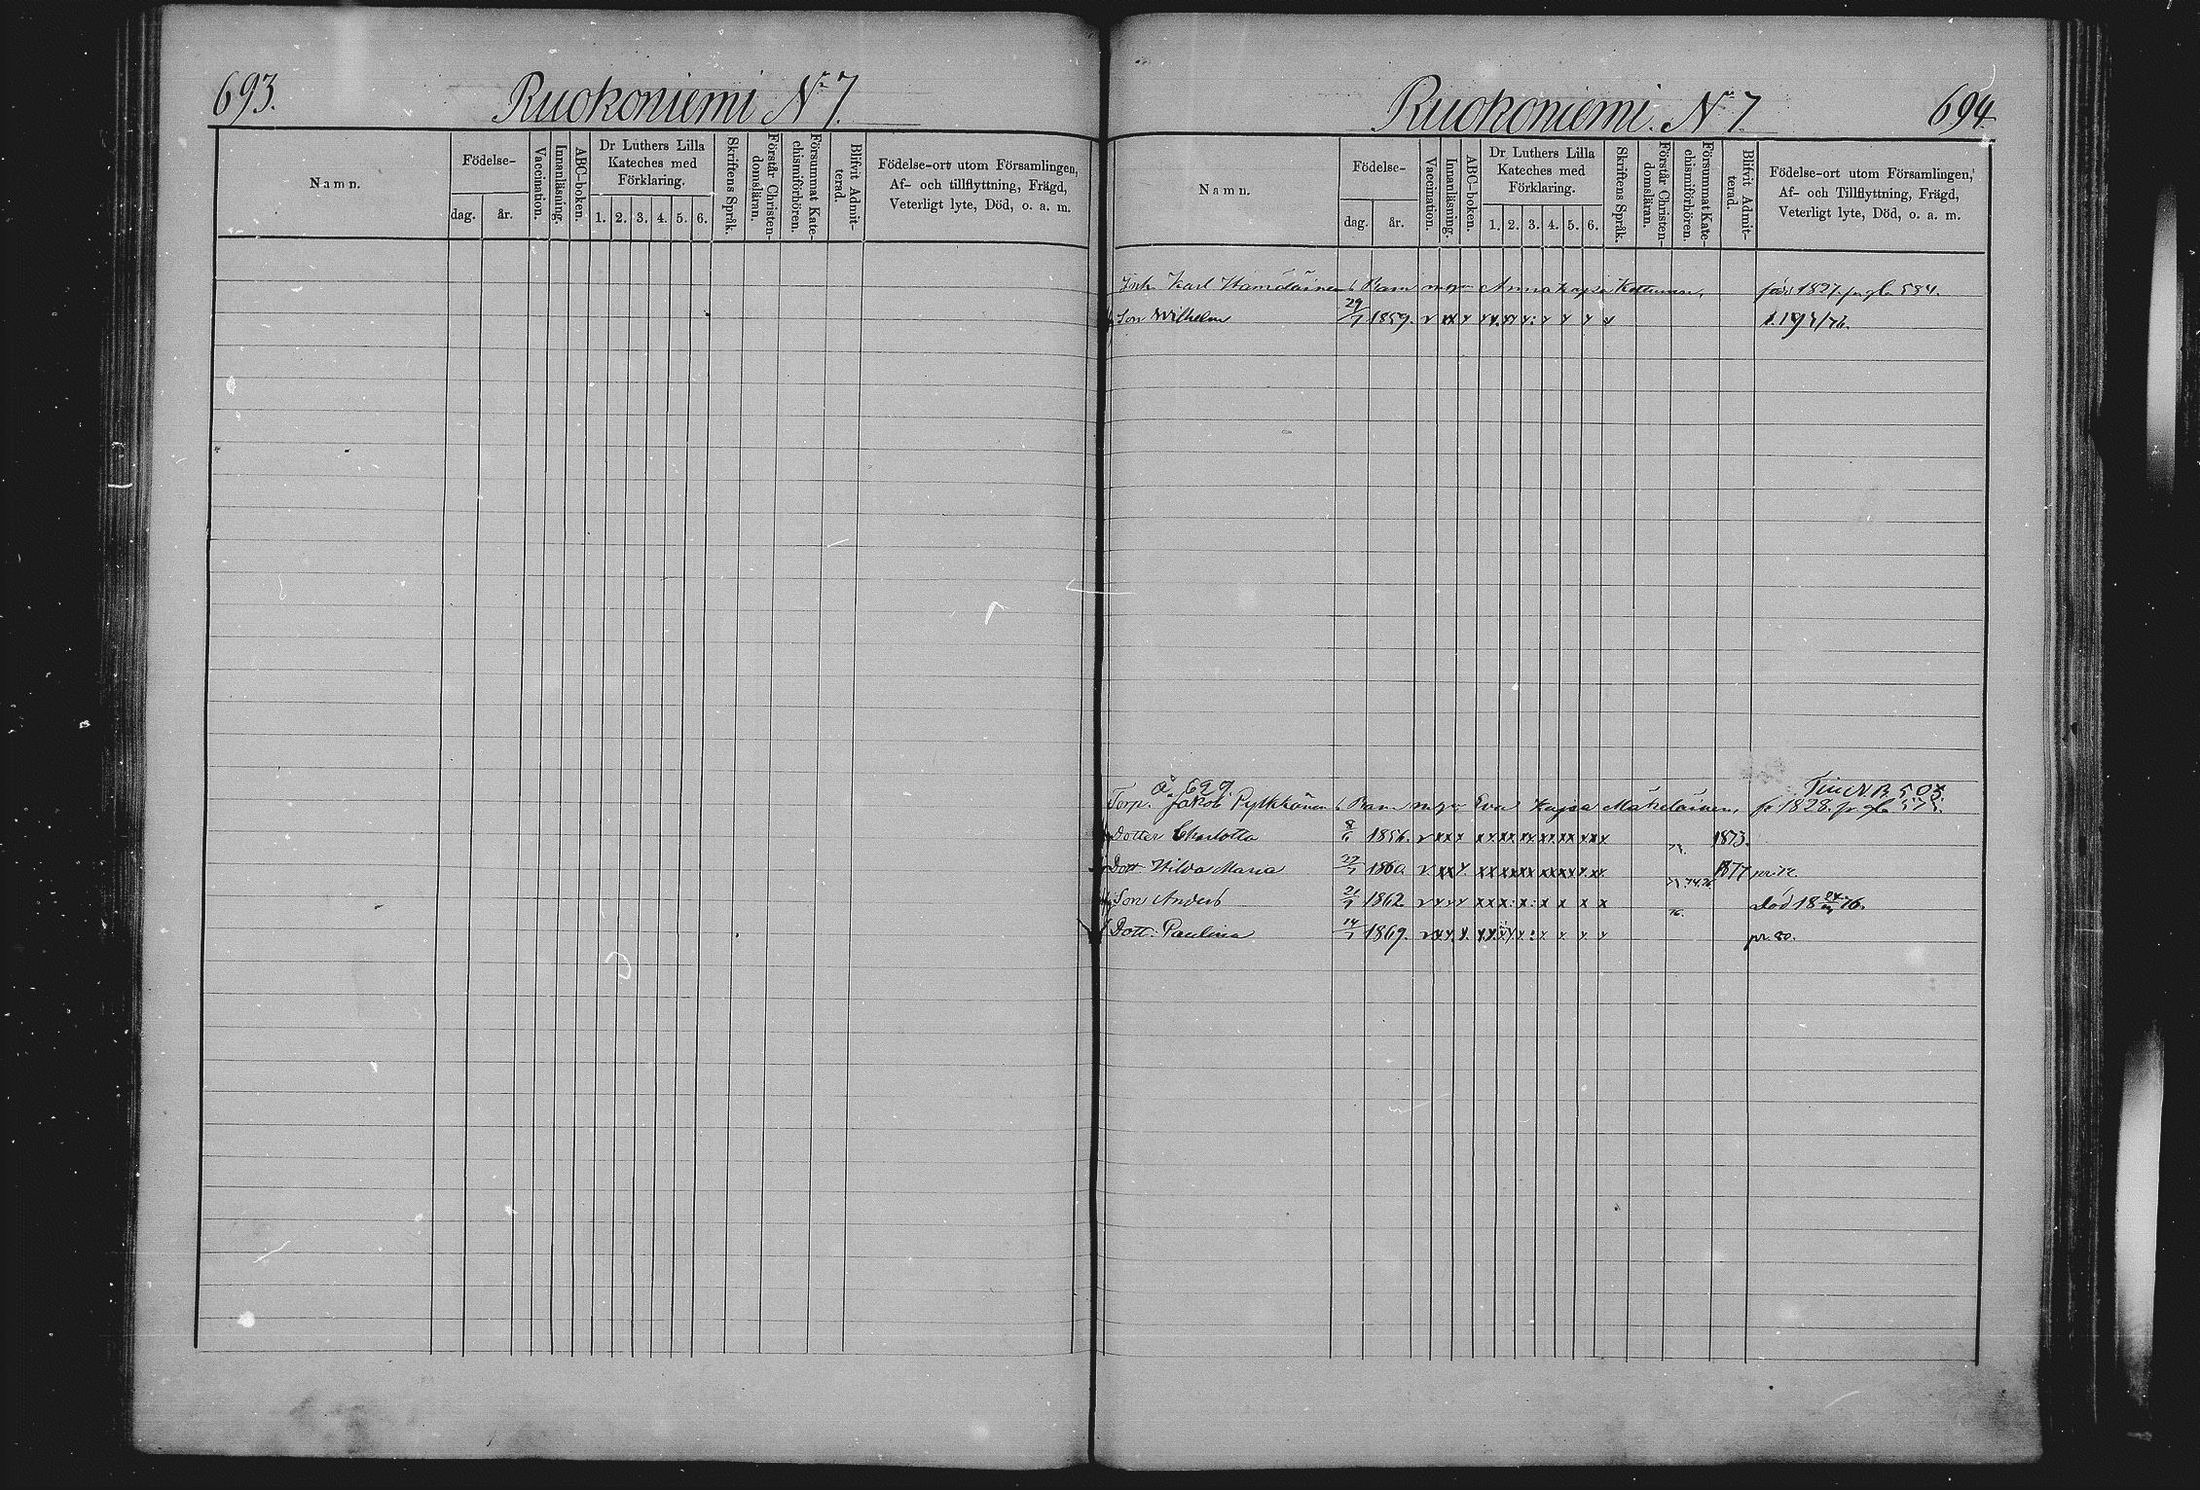 693.
Ruokoniemi No 7.
Namn.
Födelse-
dag.
år.
Vaccination.
Innanläsning.
ABC-boken.
Dr Luthers Lilla
Kateches med
Förklaring.
1. 2. 3. 4. 5. 6.
Skriftens Språk.
Förstår Christen-
domsläran.
Försummat Kate-
chismiförhören.
Blifvit Admit-
terad.
Födelse-ort utom Församlingen,
Af- och tillflyttning, Frägd,
Veterligt lyte, Död, o. a. m.
Ruokoniemi. No 7.
694.
Namn.
Födelse-
dag.
år.
Vaccination.
Innanläsning.
ABC-boken.
Dr Luthers Lilla
Kateches med
Förklaring.
1. 2. 3. 4. 5. 6.
Skriftens Språk.
Förstår Christen-
domsläran.
Försummat Kate-
chismiförhören.
Blifvit Admit-
terad.
Födelse-ort utom Församlingen,
Af- och Tillflyttning, Frägd,
Veterligt lyte, Död, o. a. m.
Karl Hämäläinen Barn Anna Kajsa född 1827
Son Wilhelm 29/7 1859.
å 697.
Torp. Jakob Pylkkänen Barn Eva Kajsa Mäkeläinen, 1828
Dotter Charlotta 1856. 1873.
Dott. Hilda Maria 27/7 1860 1877
Son Anders 21/9 1862 76. Död 18 76.
Dott. Paulina 14/7 1869. pr. 80.